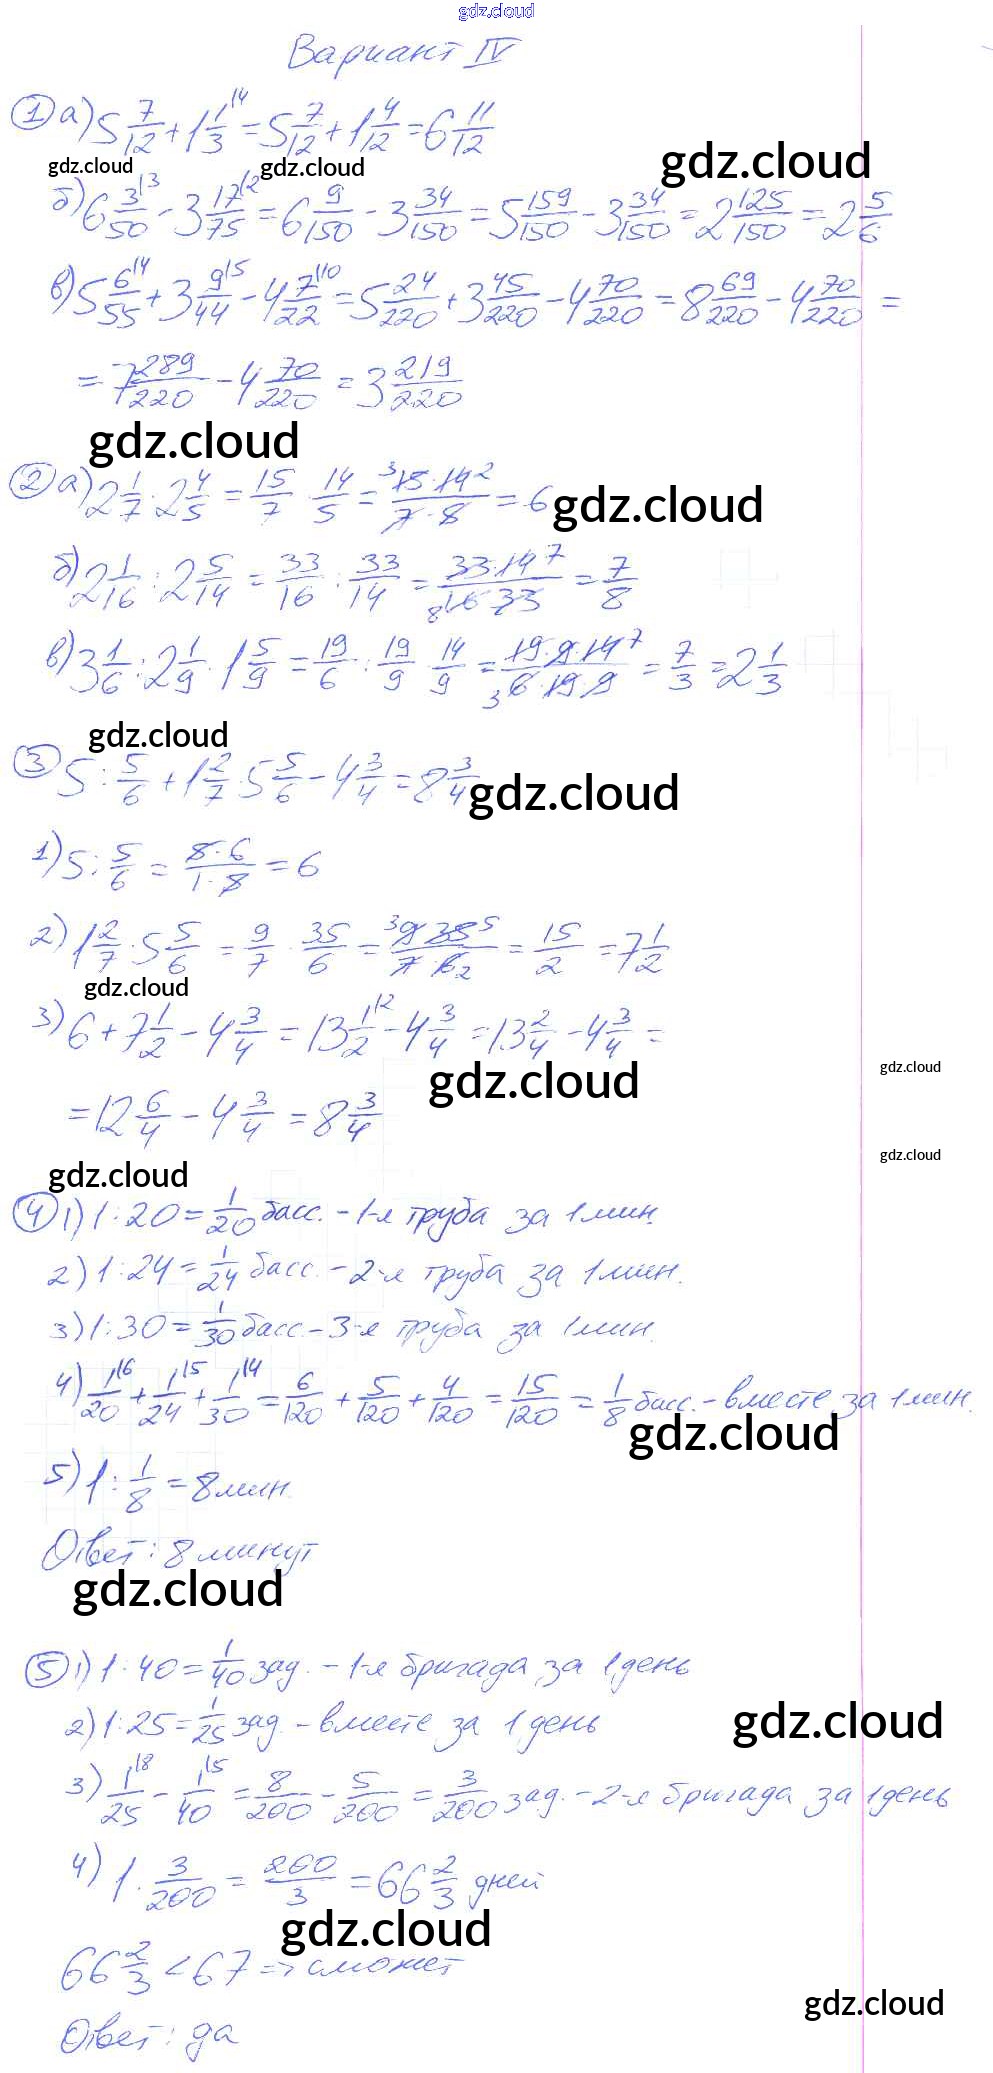 gdz.cloud
Вариант IV
① а) 5 7/12 + 1 1/3 \4 = 5 7/12 + 1 4/12 = 6 11/12
gdz.cloud gdz.cloud gdz.cloud
б) 6 3/50 \3 - 3 17/75 \2 = 6 9/150 - 3 34/150 = 5 159/150 - 3 34/150 = 2 125/150 = 2 5/6
в) 5 6/55 \4 + 3 9/44 \5 - 4 7/22 \10 = 5 24/220 + 3 45/220 - 4 70/220 = 8 69/220 - 4 70/220 =
= 7 289/220 - 4 70/220 = 3 219/220
gdz.cloud
② а) 2 1/7 · 2 4/5 = 15/7 · 14/5 = 3 15·14 2/7·5 = 6
gdz.cloud
б) 2 1/16 : 2 5/14 = 33/16 : 33/14 = 33·14 7/8 16·33 = 7/8
в) 3 1/6 : 2 1/9 · 1 5/9 = 19/6 : 19/9 · 14/9 = 19·9·14 7/3 6·19·9 = 7/3 = 2 1/3
gdz.cloud
③ 5 : 5/6 + 1 2/7 · 5 5/6 - 4 3/4 = 8 3/4
gdz.cloud
1) 5 : 5/6 = 5·6/1·5 = 6
2) 1 2/7 · 5 5/6 = 9/7 · 35/6 = 3 9·35 5/7·6 2 = 15/2 = 7 1/2
gdz.cloud
3) 6 + 7 1/2 - 4 3/4 = 13 1/2 \2 - 4 3/4 = 13 2/4 - 4 3/4 =
gdz.cloud gdz.cloud
= 12 6/4 - 4 3/4 = 8 3/4
gdz.cloud
gdz.cloud
④ 1) 1 : 20 = 1/20 басс. - 1-я труба за 1 мин.
2) 1 : 24 = 1/24 басс. - 2-я труба за 1 мин.
3) 1 : 30 = 1/30 басс. - 3-я труба за 1 мин.
4) 1/20 \6 + 1/24 \5 + 1/30 \4 = 6/120 + 5/120 + 4/120 = 15/120 = 1/8 басс. - вместе за 1 мин.
gdz.cloud
5) 1 : 1/8 = 8 мин.
Ответ: 8 минут
gdz.cloud
⑤ 1) 1 : 40 = 1/40 зад. - 1-я бригада за 1 день
2) 1 : 25 = 1/25 зад. - вместе за 1 день
gdz.cloud
3) 1/25 \8 - 1/40 \5 = 8/200 - 5/200 = 3/200 зад. - 2-я бригада за 1 день
4) 1 · 3/200 = 200/3 = 66 2/3 дней
gdz.cloud
66 2/3 < 67 => сможет
gdz.cloud
Ответ: да